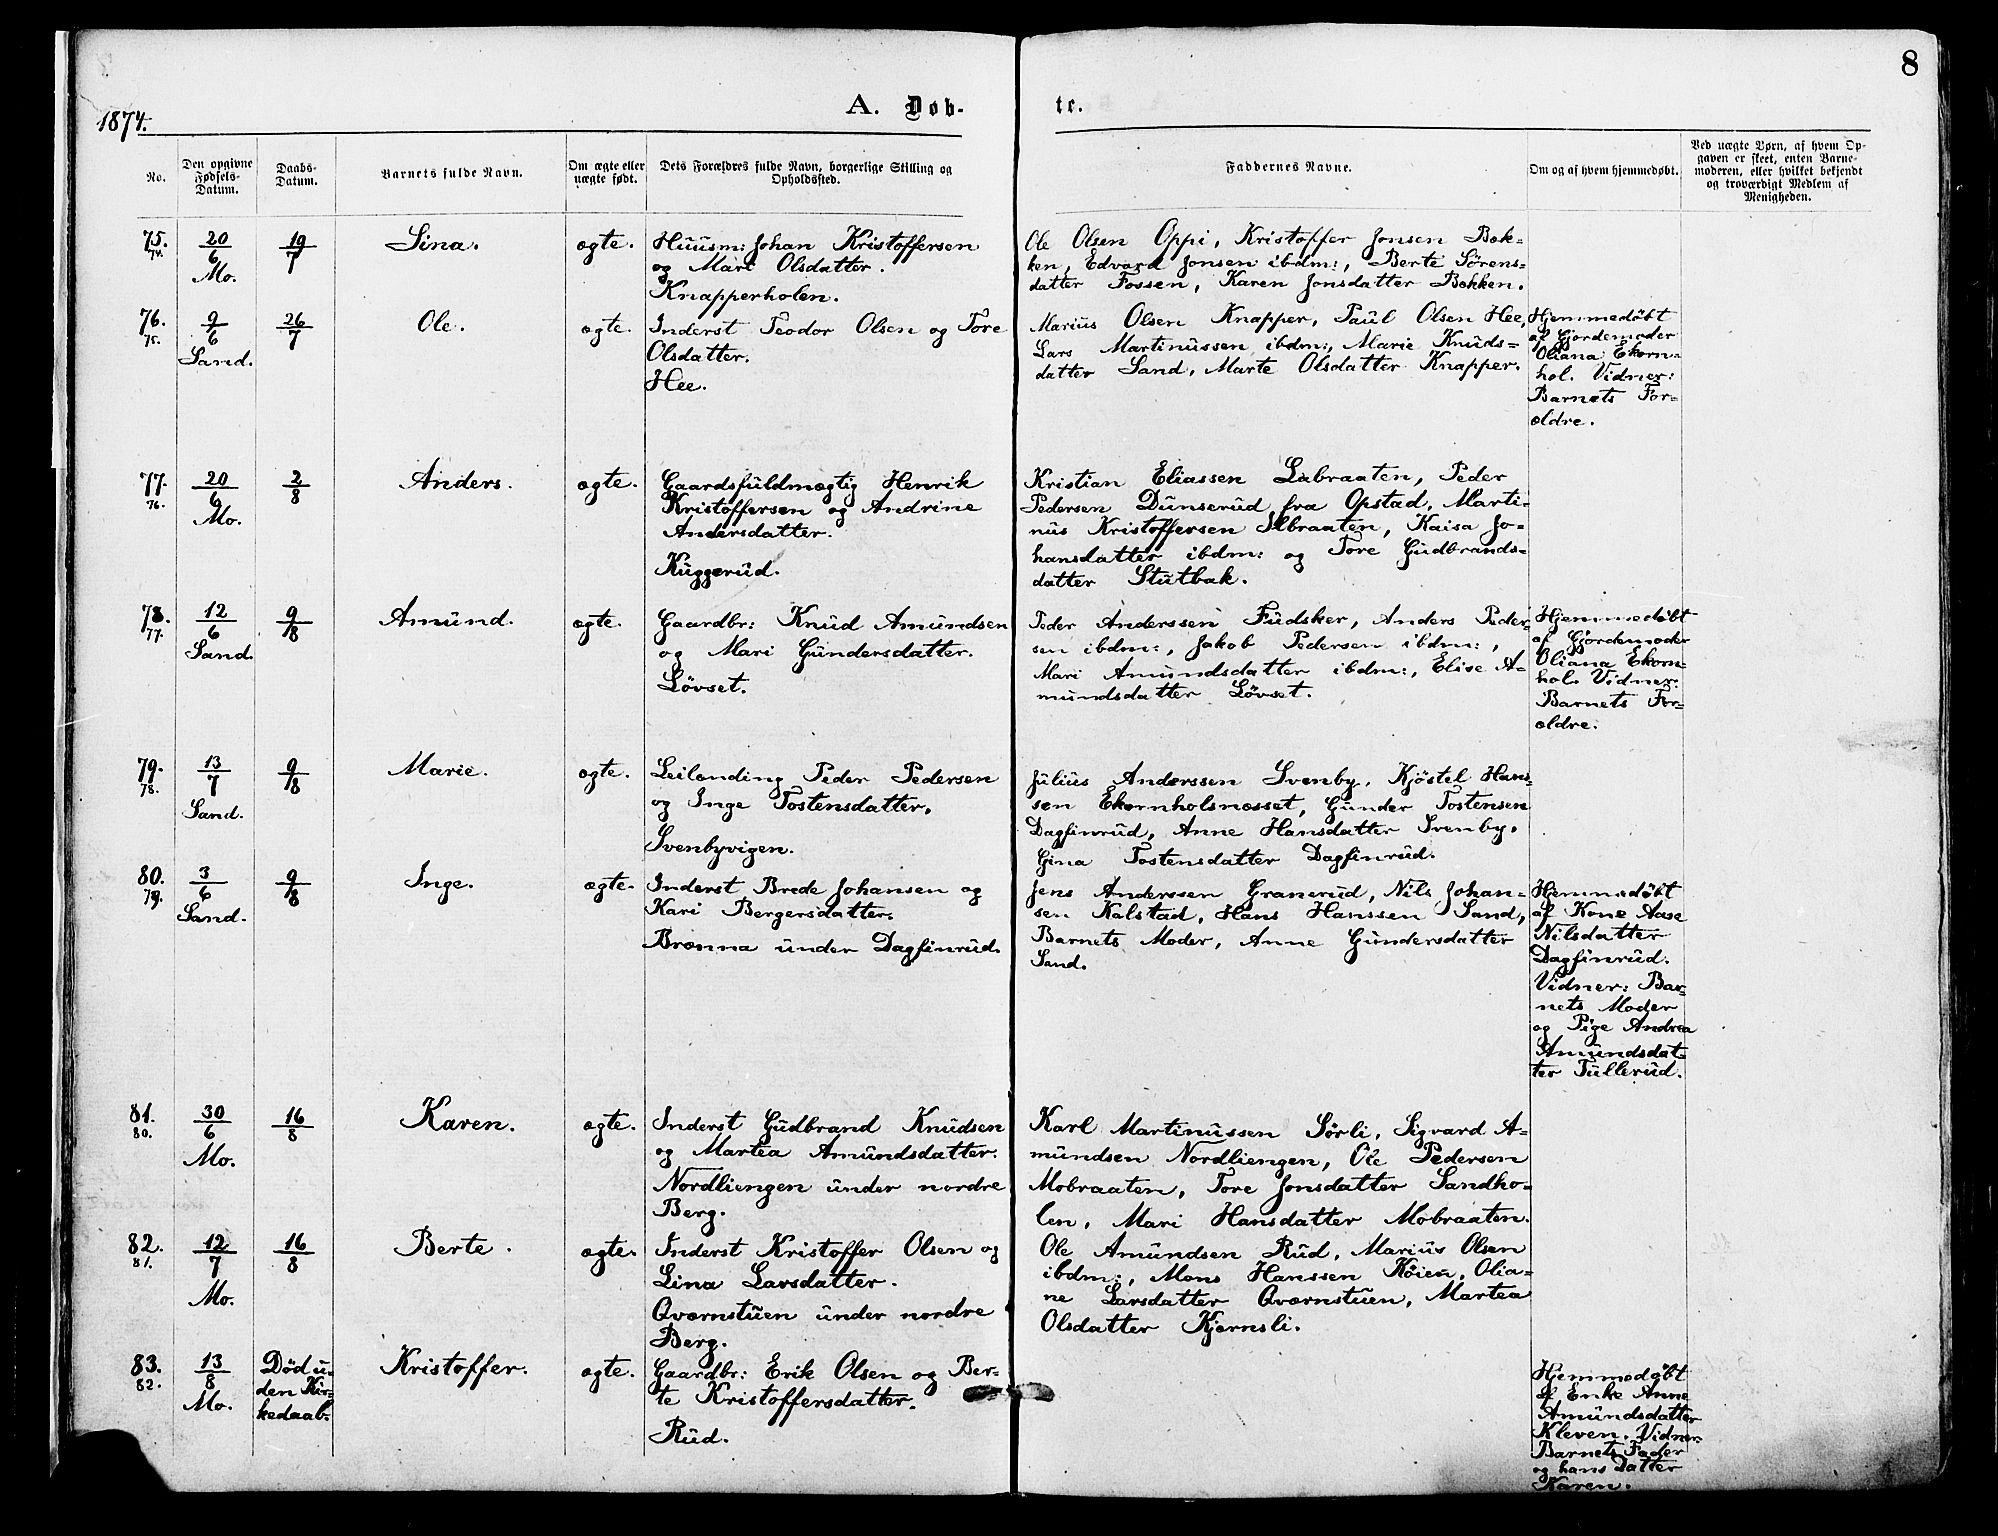 8
1874.
A. Døb-
te.
No.
Den opgivne
Fødsels-
Datum.
Daabs-
Datum.
Barnets fulde Navn.
Om ægte eller
uægte født.
Dets Forældres fulde Navn, borgerlige Stilling og
Opholdssted.
Faddernes Navne.
Om og af hvem hjemmedøbt.
Ved uægte Børn, af hvem Op-
gaven er skeet, enten Barne-
moderen, eller hvilket bekjendt
og troværdigt Medlem af
Menigheden.
75.
74.
20
6
Mo.
19
7
Lina.
ægte.
Huusm: Johan Kristoffersen
og Mari Olsdatter.
Knapperholen.
Ole Olsen Oppi, Kristoffer Jonsen Bæk-
ken, Edvard Jonsen ibdm:, Berte Sørens-
datter Fossen, Karen Jonsdatter Bækken.
76.
75.
9
6
Sand.
26
7
Ole.
ægte.
Inderst Teodor Olsen og Tore
Olsdatter.
Hee.
Marius Olsen Knapper, Paul Olsen Hee,
Lars Martinussen ibdm:, Marie Knuds-
datter Sand, Marte Olsdatter Knapper.
Hjemmedøbt
af Gjordemoder
Oliana Ekorn-
hol. Vidner:
Barnets For-
ældre.
77.
76.
20
6
Mo.
2
8
Anders.
ægte.
Gaardsfuldmægtig Henrik
Kristoffersen og Andrine
Andersdatter.
Kuggerud.
Kristian Eliassen Labraaten, Peder
Pedersen Dunserud fra Opstad, Marti-
nus Kristoffersen Albraaten, Kaisa Jo-
hansdatter ibdm: og Tore Gudbrands-
datter Stutbæk.
78.
77.
12
6
Sand.
9
8
Amund.
ægte.
Gaardbr: Knud Amundsen
og Mari Gundersdatter.
Løvset.
Peder Anderssen Fudsker, Anders Peder-
sen ibdm:, Jakob Pedersen ibdm:,
Mari Amundsdatter ibdm:, Elise A-
mundsdatter Løvset.
Hjemmedøbt
af Gjordemoder
Oliana Ekorn-
hol. Vidner:
Barnets For-
ældre.
79.
78.
13
7
Sand.
9
8
Marie.
ægte.
Leilænding Peder Pedersen
og Inge Tostensdatter.
Svenbyvigen.
Julius Anderssen Svenby, Kjøstel Hans-
sen Ekornholsnæsset, Gunder Tostensen
Dagfinrud, Anne Hansdatter Svenby.
Gina Tostensdatter Dagfinrud.
80.
79.
3
6
Sand.
9
8
Inge.
ægte.
Inderst Brede Johansen og
Kari Bergersdatter.
Brænna under Dagfinrud.
Jens Anderssen Granerud, Nils Johan-
sen Kalstad, Hans Hanssen Sand,
Barnets Moder, Anne Gundersdatter
Sand.
Hjemmedøbt
af Kone Aase
Nilsdatter
Dagfinrud.
Vidner: Bar-
nets Moder
og Pige Andrea
Amundsdat-
ter Tullerud.
81.
80.
30
6
Mo.
16
8
Karen.
ægte.
Inderst Gudbrand Knudsen
og Martea Amundsdatter.
Nordliengen under nordre
Berg.
Karl Martinussen Sørli, Sigvard A-
mundsen Nordliengen, Ole Pedersen
Mobraaten, Tore Jonsdatter Sandho-
len, Mari Hansdatter Mobraaten.
82.
81.
12
7
Mo.
16
8
Berte.
ægte.
Inderst Kristoffer Olsen og
Lina Larsdatter.
Qværnstuen under nordre
Berg.
Ole Amundsen Rud, Marius Olsen
ibdm:, Mons Hanssen Køien, Olia-
ne Larsdatter Qværnstuen, Martea
Olsdatter Kjærnsli.
83.
82.
13
8
Mo.
Død u-
den Kir-
kedaab.
Kristoffer.
ægte.
Gaardbr: Erik Olsen og Ber-
te Kristoffersdatter.
Rud.
Hjemmedøbt
af Enke Anne
Amundsdatter
Kleven. Vidner:
Barnets Fader
og hans Datter
Karen.